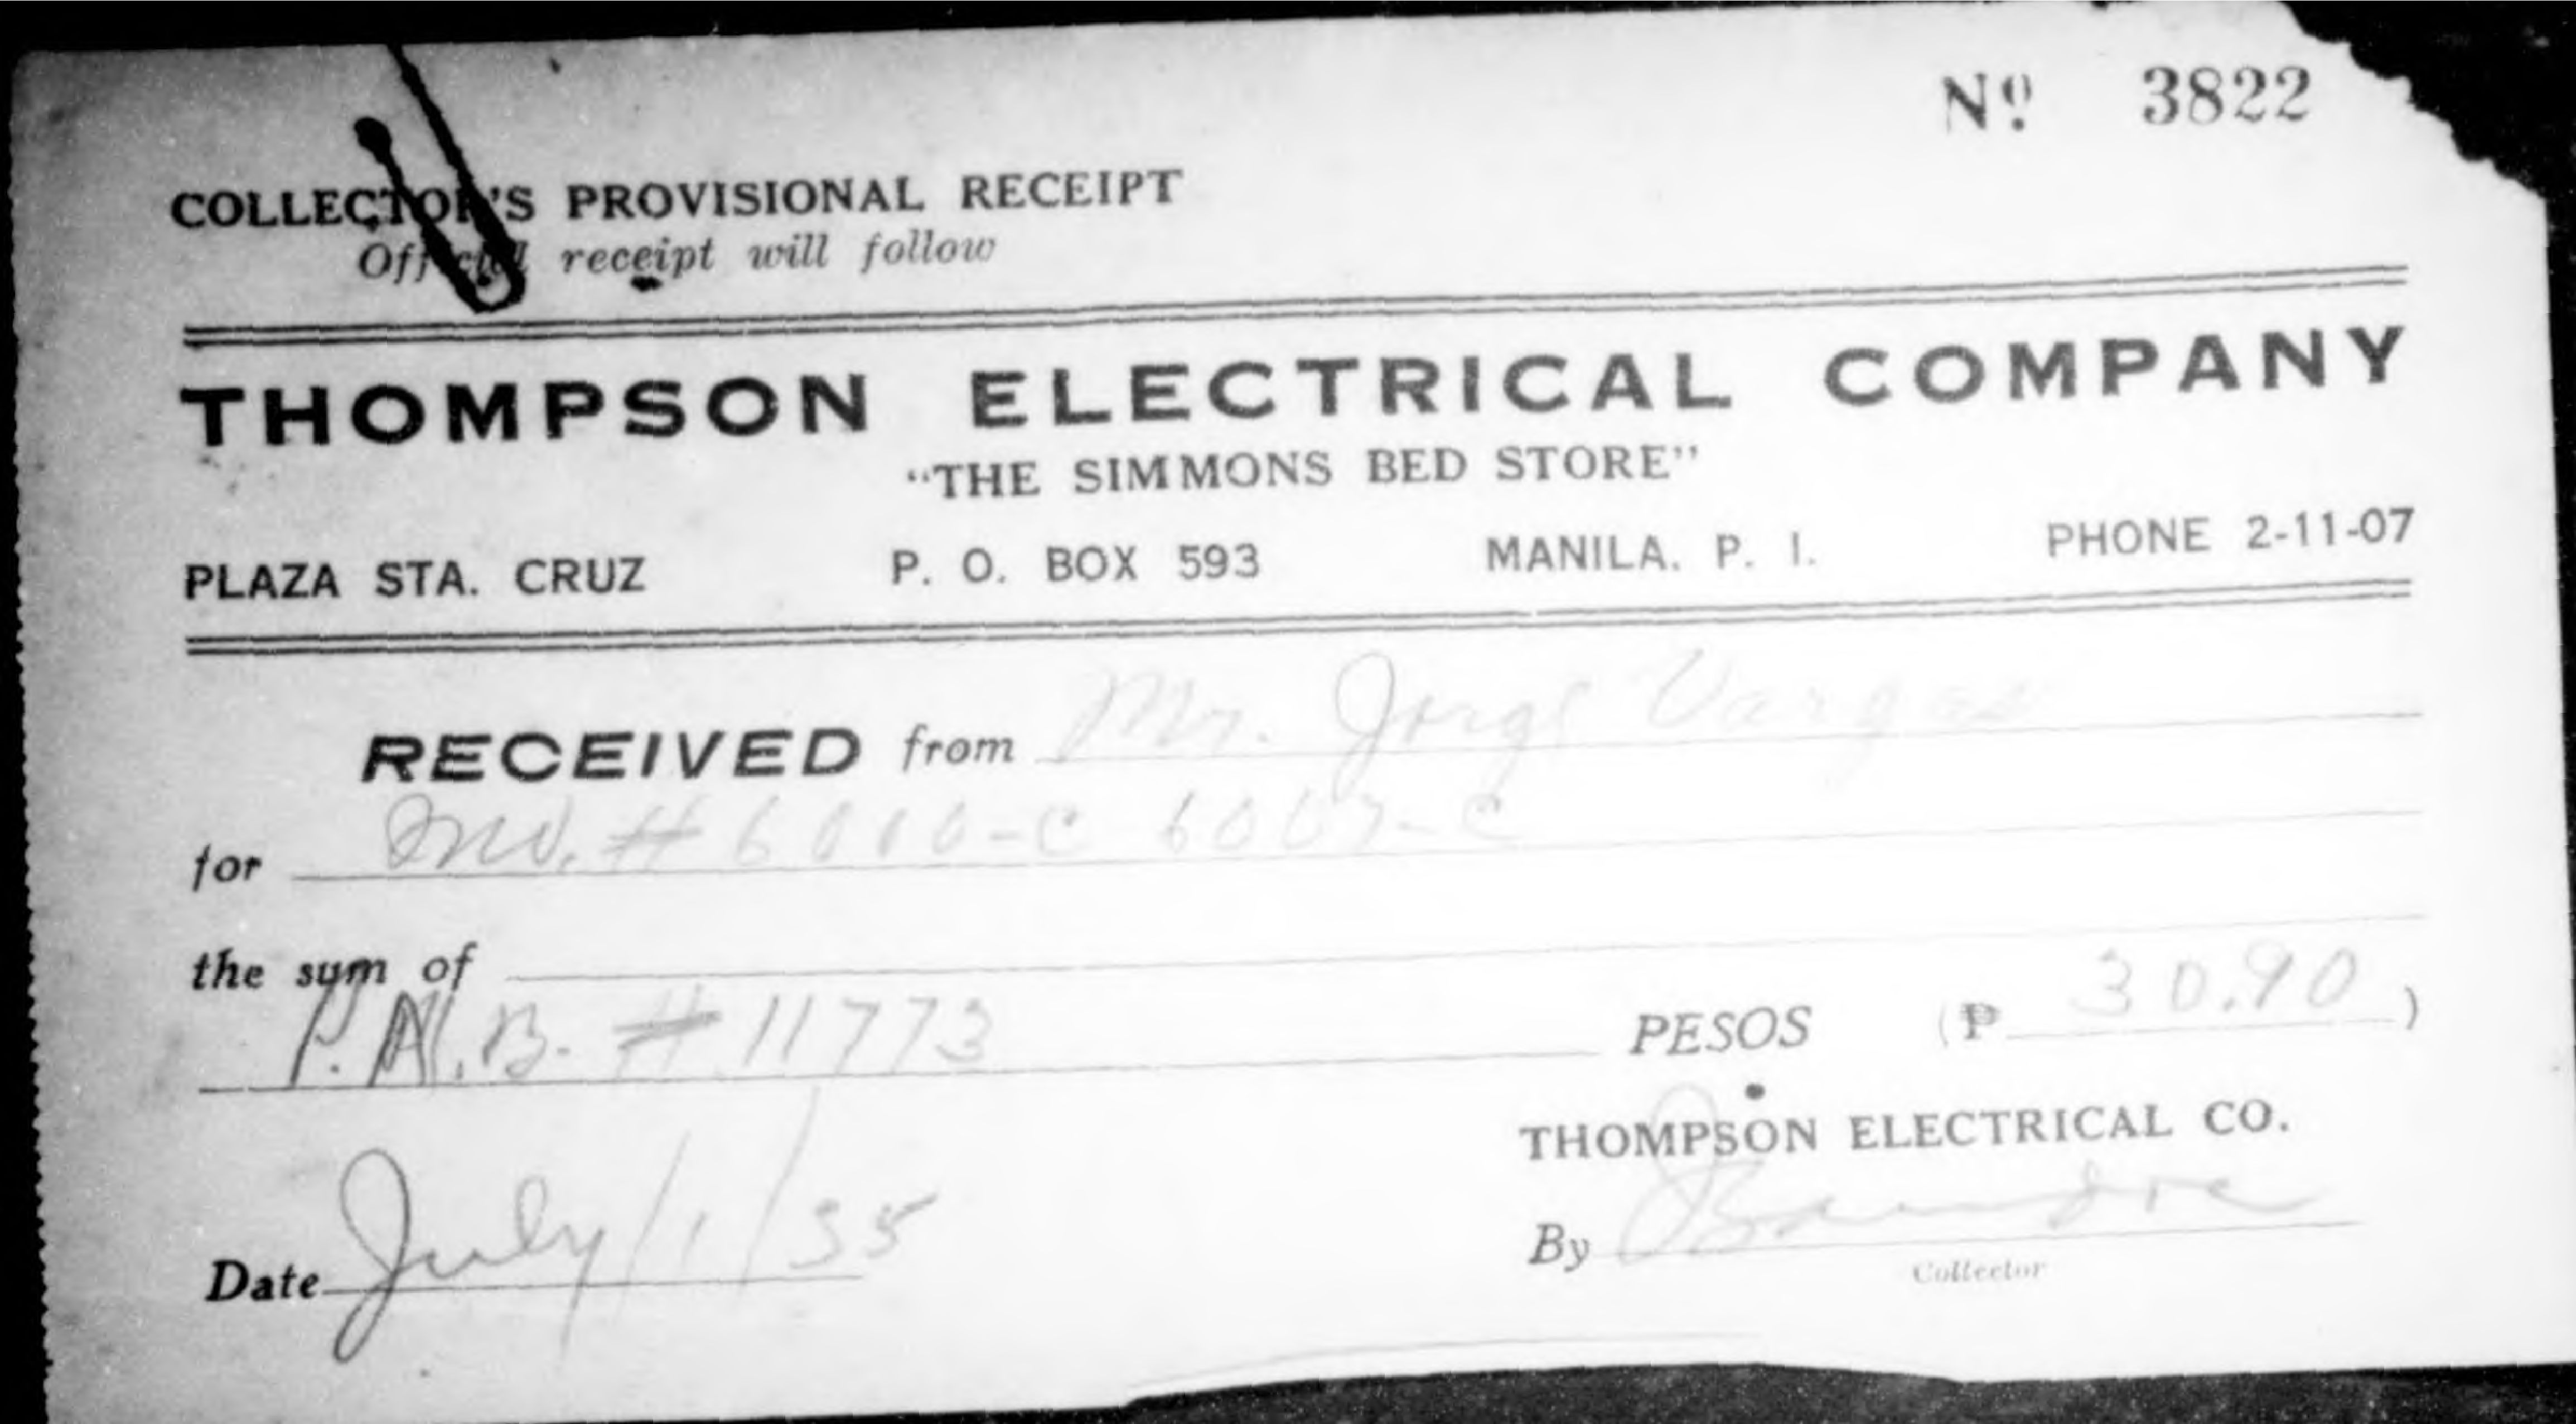 Nº 3822
COLLECTOR'S PROVISIONAL RECEIPT
Official receipt will follow
THOMPSON ELECTRICAL COMPANY
"THE SIMMONS BED STORE"
PLAZA STA. CRUZ P. O. BOX 593 MANILA, P. I. PHONE 2-11-07
RECEIVED from Mr. Jorge Vargas
for Inv. # 6010-C 6007-C
the sum of
P.N.B. # 11773 PESOS (₱ 30.90)
THOMPSON ELECTRICAL CO.
Date July/1/35 By
Collector